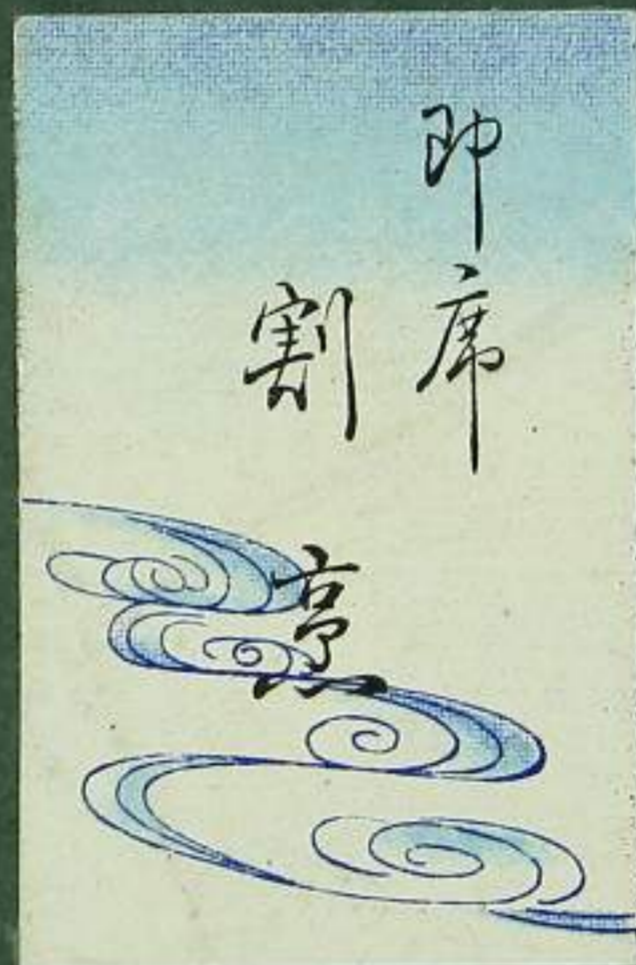 即席
割烹